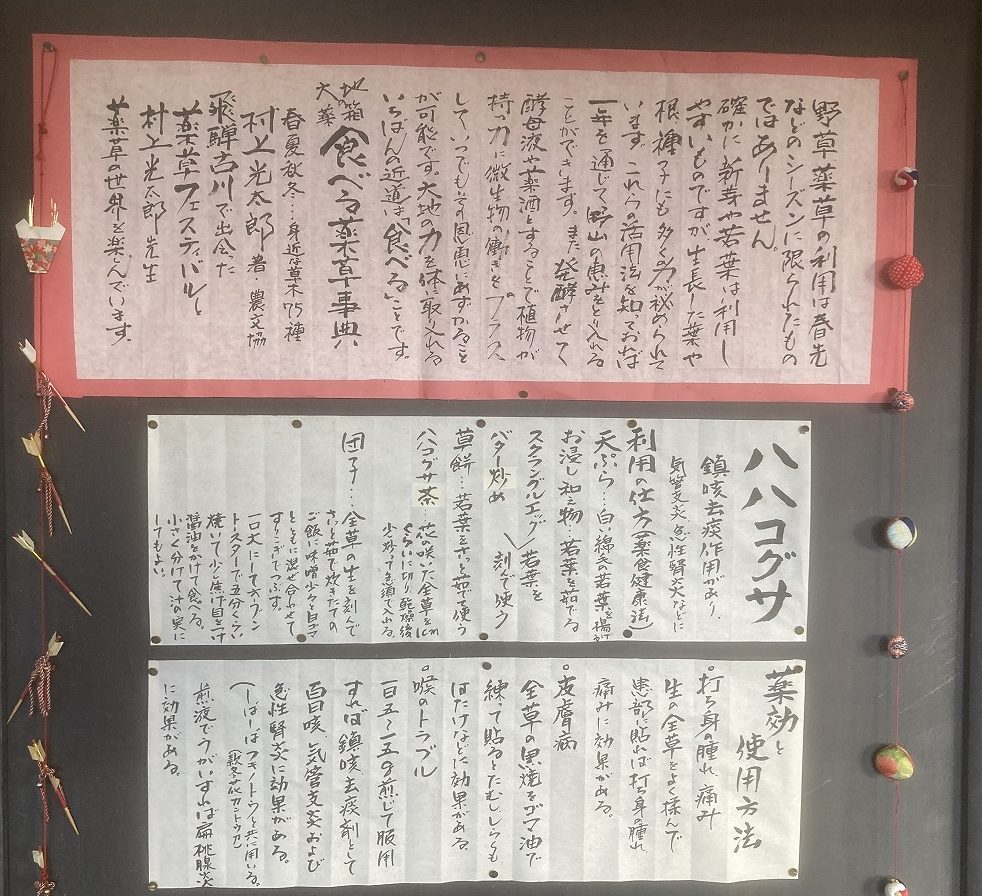 野草薬草の利用は春先
などのシーズンに限られたもの
ではありません。
確かに新芽や若葉は利用し
やすいものですが生長した葉や
根、種子にも多くの力が秘められて
います。これらの活用法を知っておれば
一年を通じて野山の恵みをとり入れる
ことができます。また発酵させて
酵母液や薬酒とすることで植物が
持つ力に微生物の働きをプラス
していつでもその恩恵にあずかること
が可能です。大地の力を体に取り入れる
いちばんの近道は「食べる」ことです。
大地の薬箱 食べる薬草事典
春夏秋冬…身近な草木75種
村上光太郎 著・農文協
飛騨古川で出会った
薬草フェスティバルと
村上光太郎先生
薬草の世界を楽しんでいます。
ハハコグサ
鎮咳去痰作用があり、
気管支炎、急性腎炎などに
利用の仕方(薬食健康法)
天ぷら…白い綿毛の若葉を揚げ
お浸し和え物…若葉を茹でる
スクランブルエッグ 若葉を
バター炒め 刻んで使う
草餅…若葉をさっと茹でて使う
ハハコグサ茶…花の咲いた全草を1cm
ぐらいに切り乾燥後
少し炒って急須で入れる。
団子…全草の生を刻んで
さっと茹で炊きたての
ご飯に味噌少々と白ゴマ
とともに混ぜ合わせて
すりこぎでつぶす。
一口大にしてオーブン
トースターで五分くらい
焼いて少し焦げ目をつけ
醤油をかけて食べる。
小さく分けて汁の実に
してもよい。
薬効と
使用方法
○打ち身の腫れ、痛み
生の全草をよく揉んで
患部に貼れば打ち身の腫れ、
痛みに効果がある。
○皮膚病
全草の黒焼をゴマ油で
練って貼るとたむししらくも
はたけなどに効果がある。
○喉のトラブル
一日五〜一五g煎じて服用
すれば鎮咳去痰剤として
百日咳、気管支炎および
急性腎炎に効果がある。
(しばしばフキノトウと共に用いる。
(款冬花カントウカ)
煎液でうがいすれば扁桃腺炎
に効果がある。